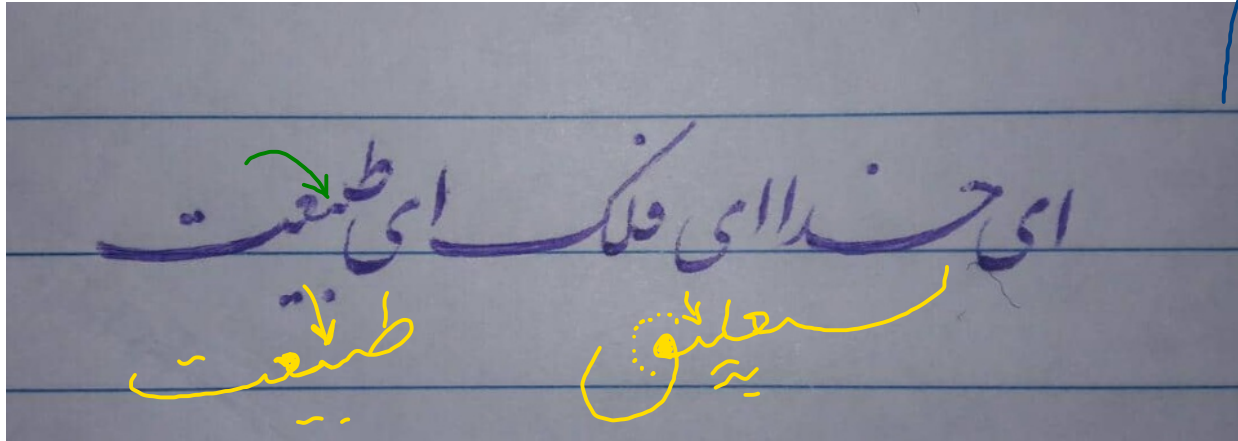 ای خدا ای فلک ای طبیعت
نستعلیق
طبیعت